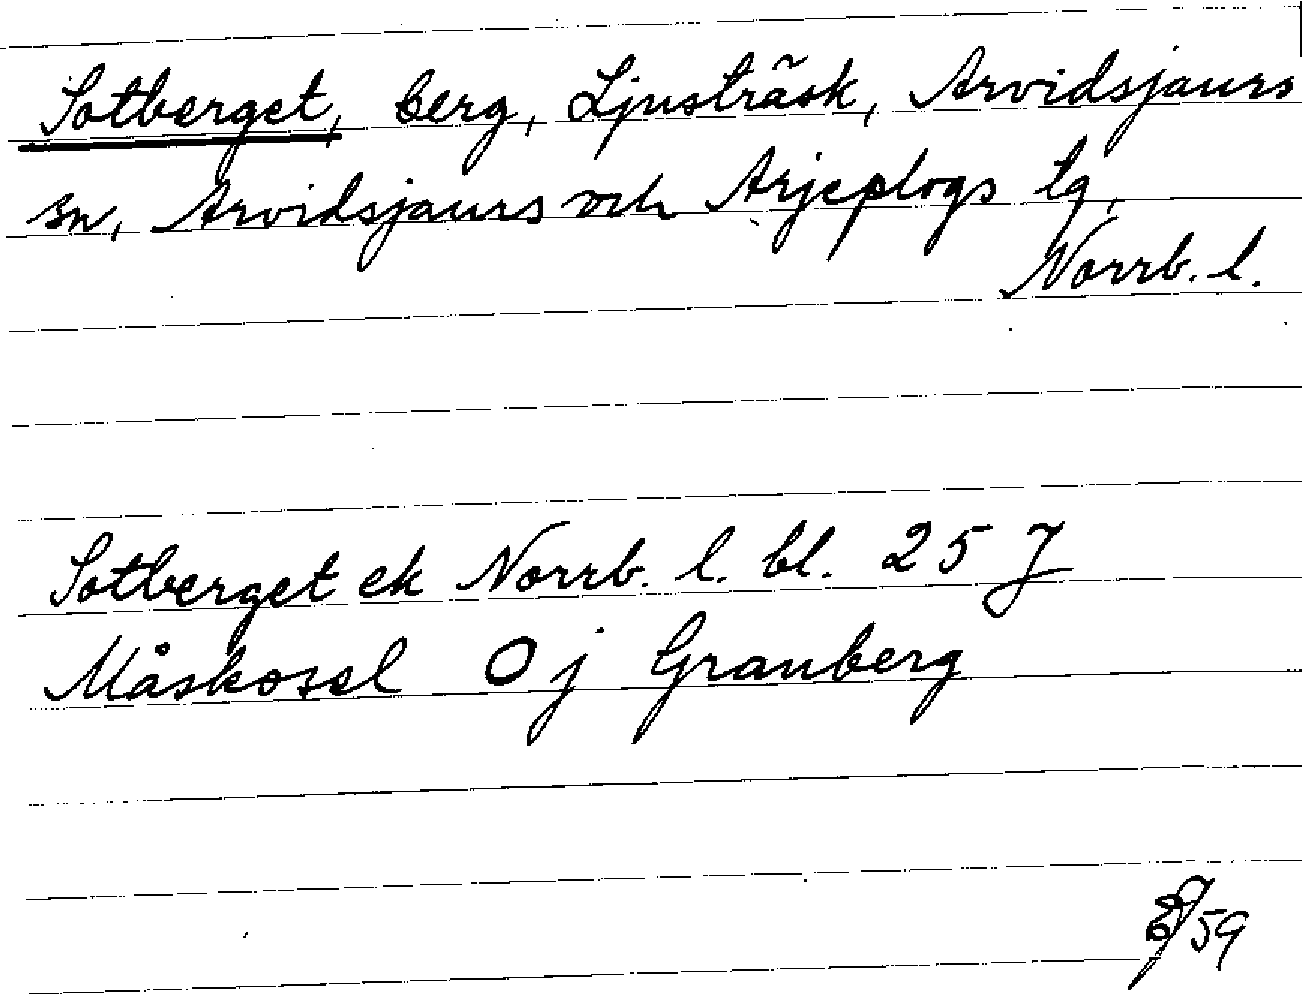 Sotberget, berg, Ljusträsk, Arvidsjaurs
sn, Arvidsjaurs och Arjeplogs tg,
Norrb. l.
Sotberget ek Norrb. l. bl. 25 J
Måskosel O j Granberg
59